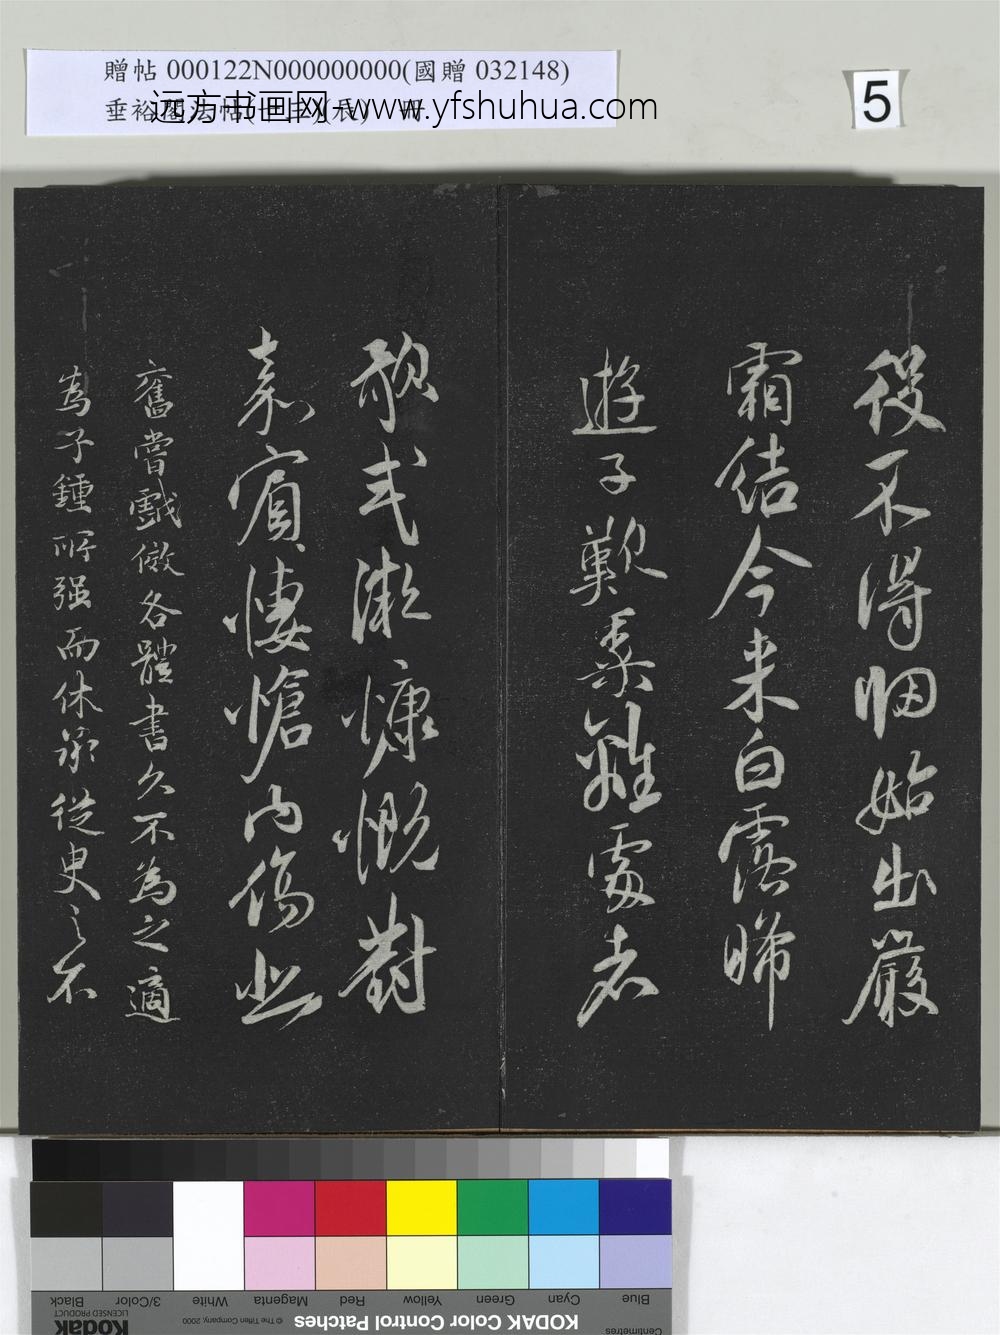 贈帖 000122N000000000(國贈 032148)
垂裕閣法帖
远方书画网-www.yfshuhua.com
5
役不得歸始出嚴
霜結今来白露晞
遊子歎黍離處者
歌式微慷慨對
嘉賓悽愴內傷悲
奮嘗戲倣各體書久不為之適
為子鍾所强而休承從臾之不
Black
3/Color
White
Magenta
Red
Yellow
Green
Cyan
Blue
Kodak
LICENSED PRODUCT
© The Tiffen Company, 2000
KODAK Color Control Patches
Centimetres